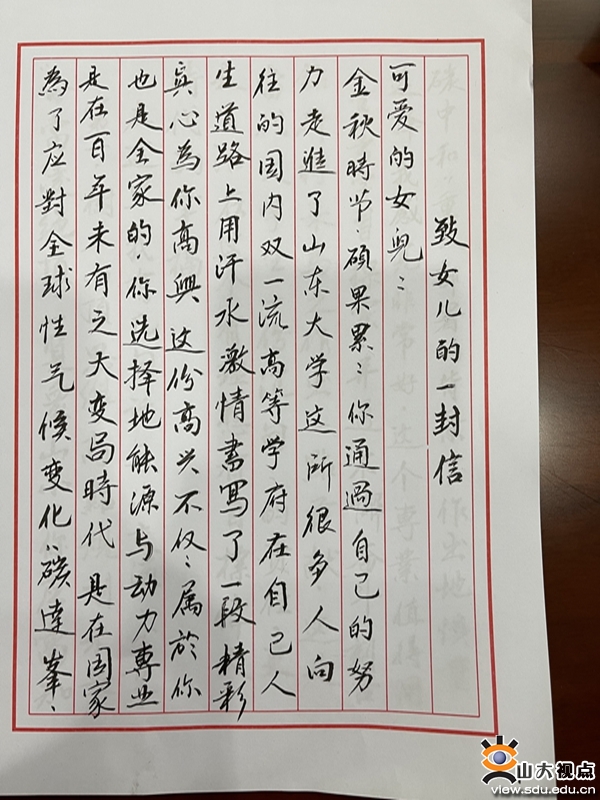 致女儿的一封信
可爱的女兒：
金秋時节，碩果累：你通過自己的努
力走進了山东大学这所很多人向
往的国内双一流高等学府在自己人
生道路上用汗水激情書寫了一段精彩
真心為你高興这份高兴不仅：属於你
也是全家的，你选择地能源与动力専业
是在百年未有之大变局時代是在国家
為了应對全球性气候变化，碳達峯、
山大视点
view.sdu.edu.cn